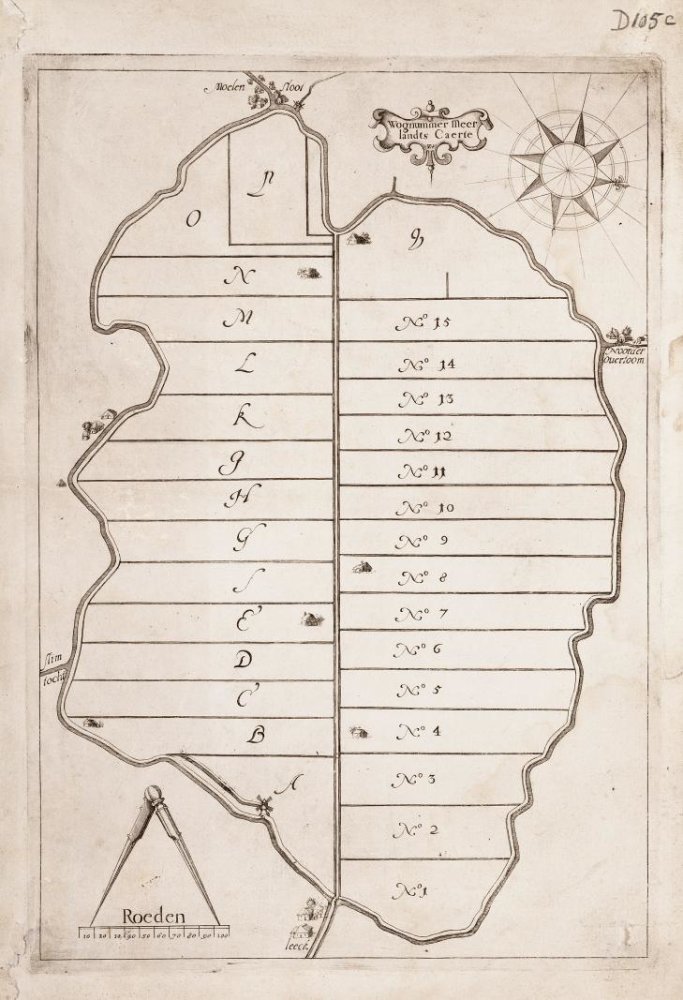 D105c
Moelen sloot
Wognummer Meer
landts Caerte
P
O
Q
N
M
No 15
L
No 14
No 13
K
No 12
J
No 11
H
No 10
G
No 9
F
No 8
E
No 7
D
No 6
C
No 5
B
No 4
A
No 3
No 2
No 1
Nooraer
Ouerloom
slim
tocht
leeck
Roeden
10 20 30 40 50 60 70 80 90 100